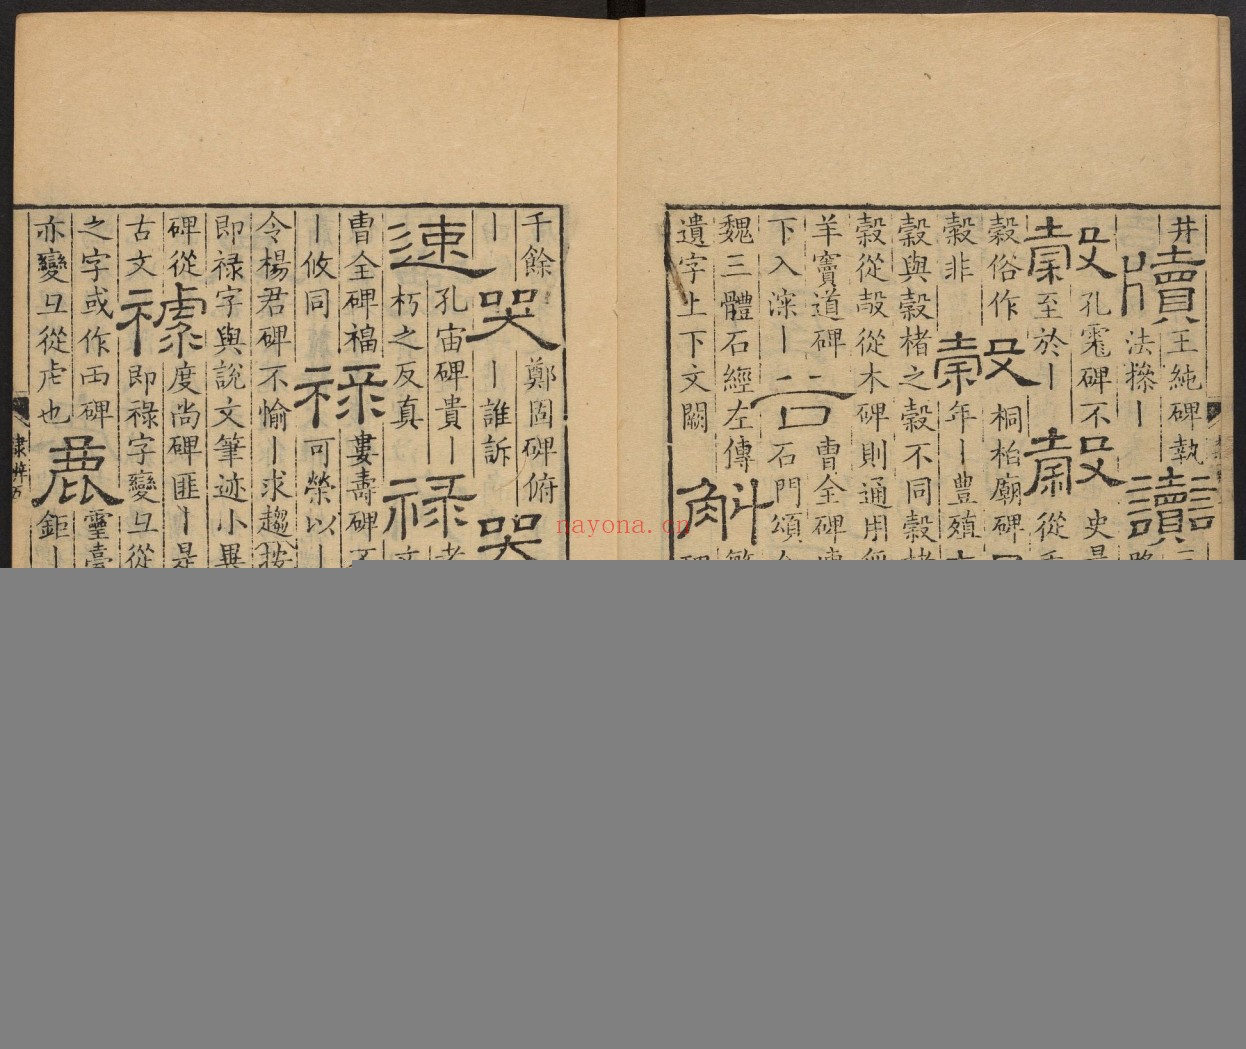 井牘王純碑執讀
法㨆丨
孔宙碑不
穀至於丨穀從
穀俗作穀桐柏廟碑
穀非穀年丨豊殖
穀與穀楮之穀不同穀楮
穀從㱿從木碑則通用
羊竇道碑曹全碑
下入深丨谷石門頌
魏三體石經左傳
遺字上下文闕斛
千餘鄭固碑俯
丨哭丨誰訴哭
孔宙碑貴丨祿
速朽之反真
曹全碑福祿婁壽碑
丨攸同可榮以丨
令楊君碑不愉丨求趨按
即祿字與說文筆迹小異
碑從度尚碑匪丨是
古文即祿字變彑從
之字或作西碑靈臺
亦變彑從虍也鹿鉅丨
隸辨五
nayona.cn